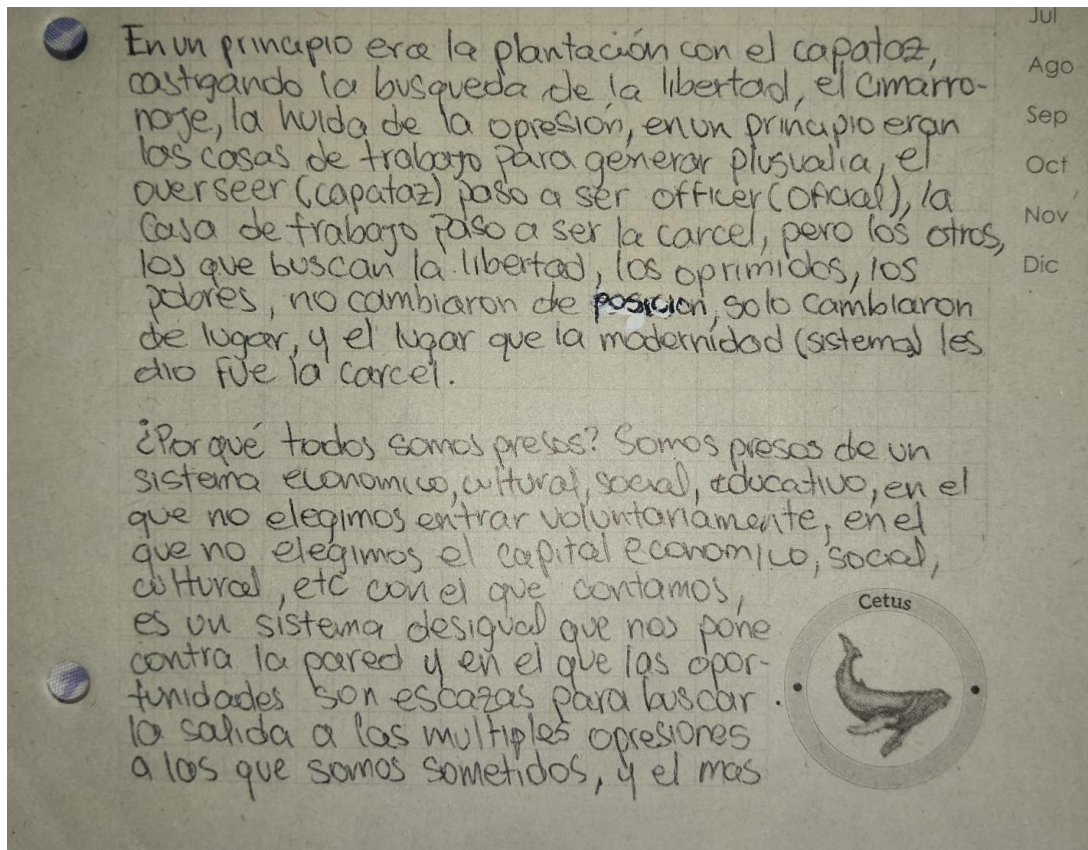 Jul
Ago
Sep
Oct
Nov
Dic
En un principio era la plantación con el capataz,
castigando la busqueda de la libertad, el cimarro-
naje, la huida de la opresión, en un principio eran
las casas de trabajo para generar plusvalia, el
overseer (capataz) paso a ser officer (oficial), la
casa de trabajo paso a ser la carcel, pero los otros,
los que buscan la libertad, los oprimidos, los
pobres, no cambiaron de posicion, solo cambiaron
de lugar, y el lugar que la modernidad (sistema) les
dio fue la carcel.
¿Por qué todos somos presos? Somos presos de un
sistema economico, cultural, social, educativo, en el
que no elegimos entrar voluntariamente, en el
que no elegimos el capital economico, social,
cultural, etc con el que contamos,
es un sistema desigual que nos pone
contra la pared y en el que las opor-
tunidades son escazas para buscar
la salida a las multiples opresiones
a las que somos sometidos, y el mas
Cetus